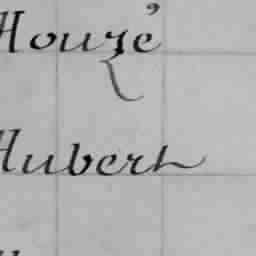 Houzé
Hubert